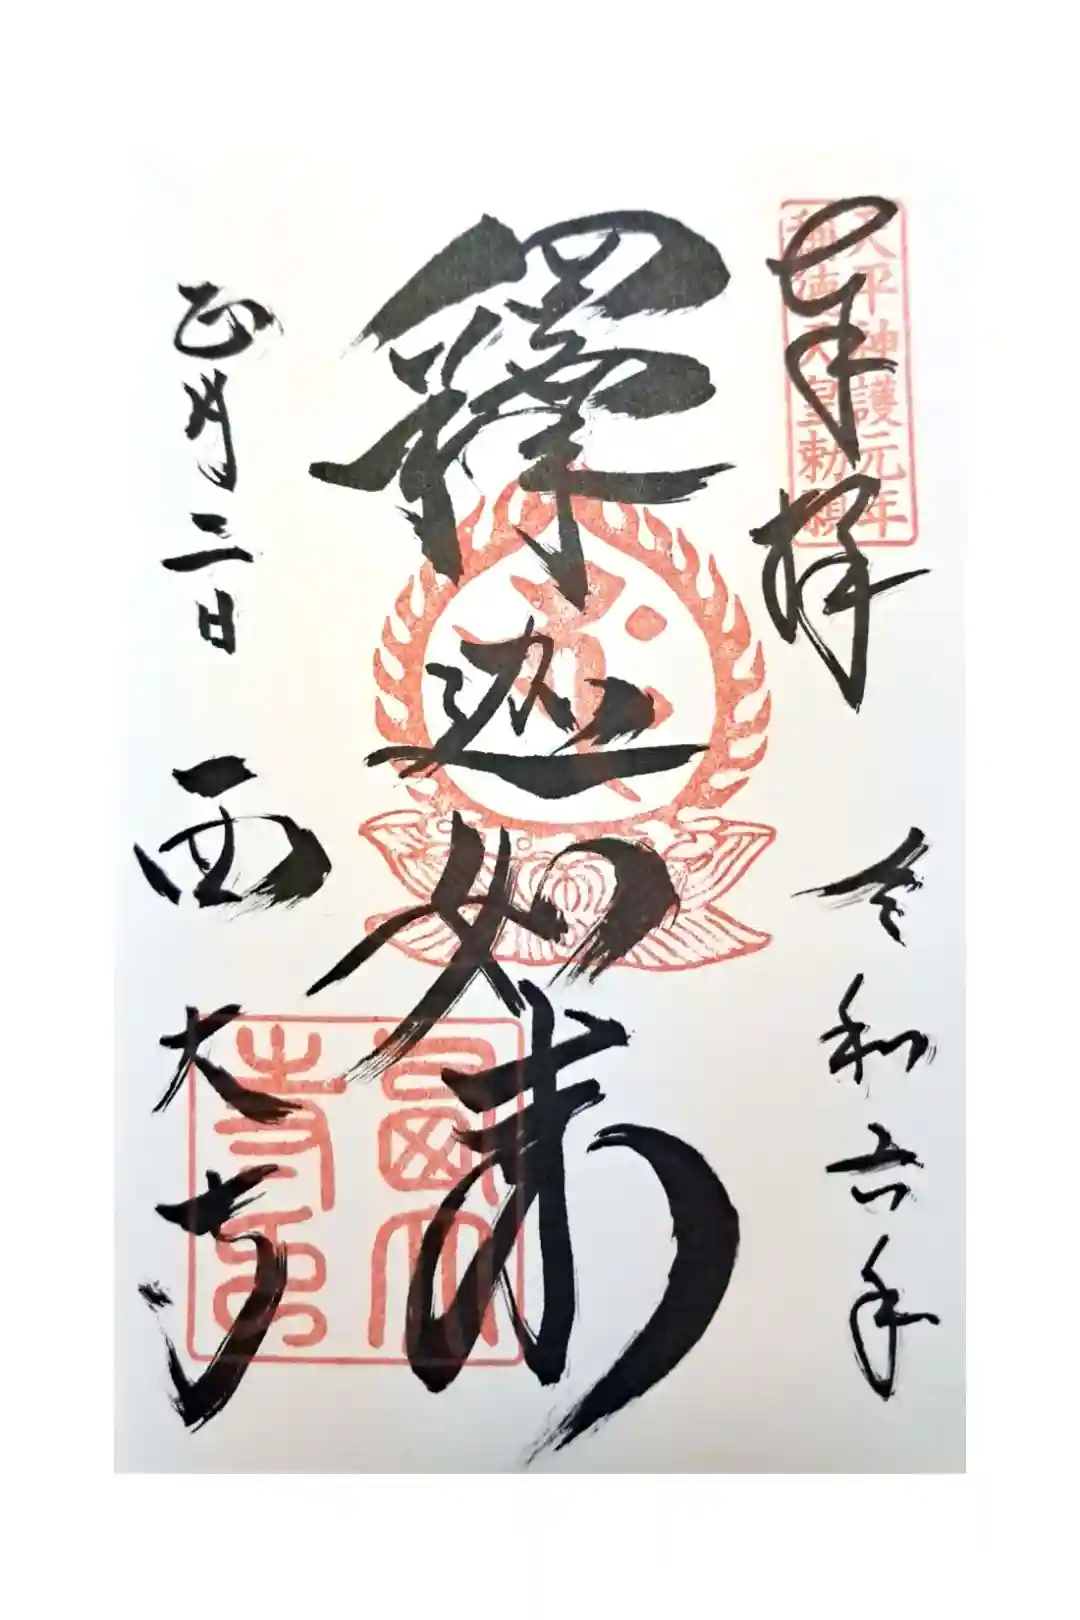 奉拝
天平神護元年
称徳天皇勅願
令和六年
釋迦如来
正月二日
西大寺